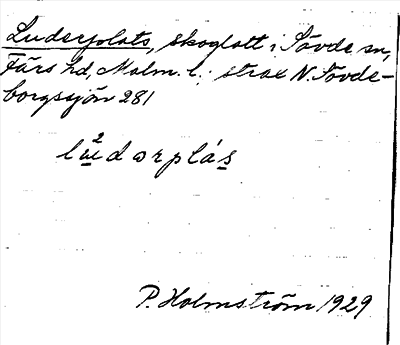 Luderplats, skoglott i Sövde sn,
Färs hd, Malm. l.; strax N. Sövde-
borgssjön 281
lu²dərplás
P. Holmström 1929